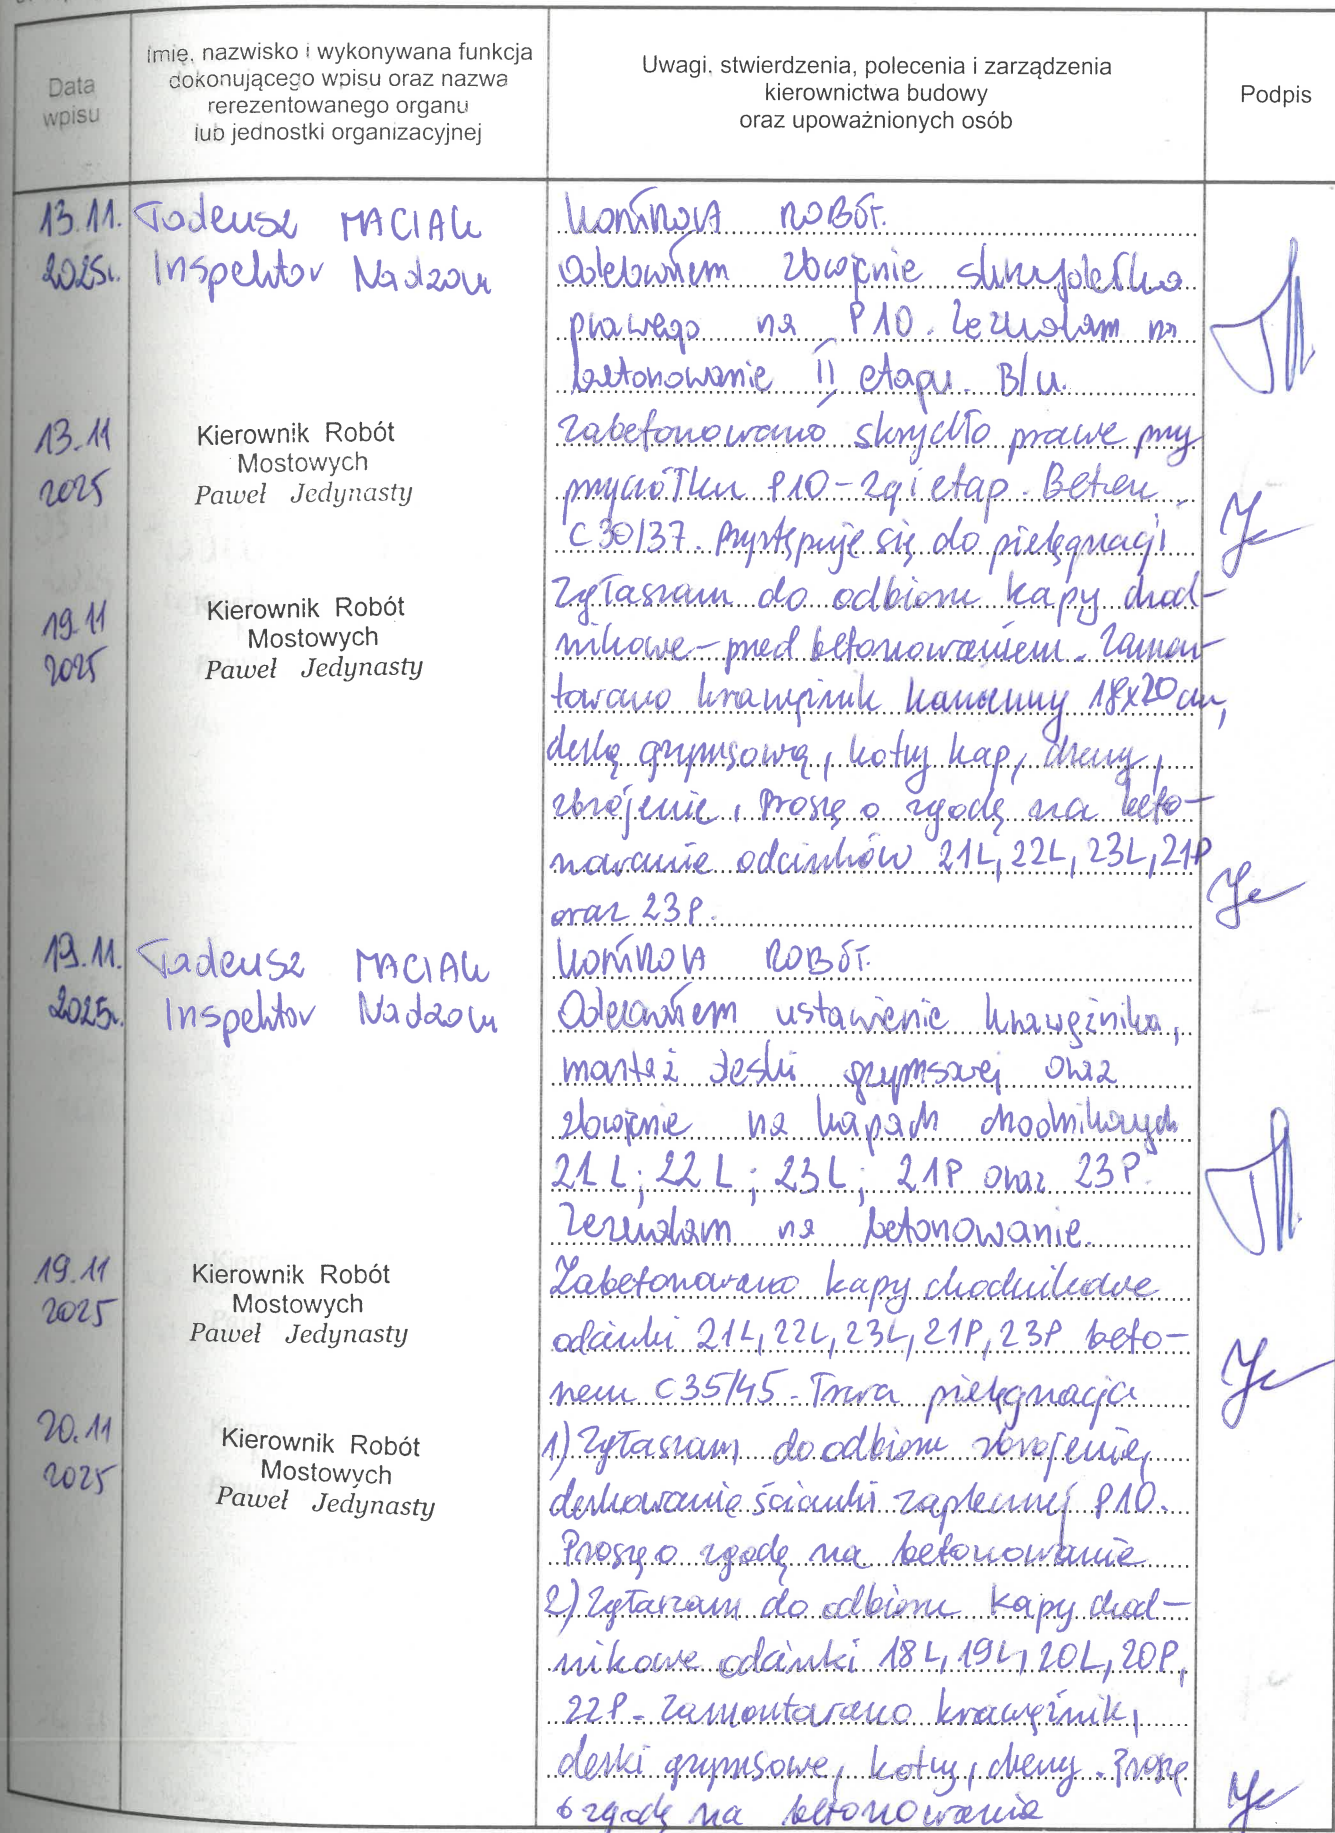 Data
wpisu
Imię, nazwisko i wykonywana funkcja
dokonującego wpisu oraz nazwa
rerezentowanego organu
lub jednostki organizacyjnej
Uwagi, stwierdzenia, polecenia i zarządzenia
kierownictwa budowy
oraz upoważnionych osób
Podpis
13.11.
2025r.
Tadeusz MACIAK
Inspektor Nadzoru
KONTROLA ROBÓT.
Odebrałem zbrojenie skrzydełka
prawego na P10. Zezwalam na
betonowanie II etapu. B/u.
13.11
2025
Kierownik Robót
Mostowych
Paweł Jedynasty
Zabetonowano skrzydło prawe przy
przyczółku P10 - 2gi etap. Beton
C30/37. Przystępuje się do pielęgnacji
19.11
2025
Kierownik Robót
Mostowych
Paweł Jedynasty
Zgłaszam do odbioru kapy chod-
nikowe - przed betonowaniem. Zamon-
towano krawężnik kamienny 18x20cm,
deskę gzymsową, kotwy kap, dreny,
zbrojenie, Proszę o zgodę na beto-
nowanie odcinków 21L, 22L, 23L, 21P
oraz 23P.
19.11.
2025r.
Tadeusz MACIAK
Inspektor Nadzoru
KONTROLA ROBÓT.
Odebrałem ustawienie krawężnika,
montaż deski gzymsowej oraz
zbrojenie na kapach chodnikowych
21L; 22L; 23L; 21P oraz 23P.
Zezwalam na betonowanie.
19.11
2025
Kierownik Robót
Mostowych
Paweł Jedynasty
Zabetonowano kapy chodnikowe
odcinki 21L, 22L, 23L, 21P, 23P beto-
nem C35/45 - Trwa pielęgnacja
20.11
2025
Kierownik Robót
Mostowych
Paweł Jedynasty
1) Zgłaszam do odbioru zbrojenie,
deskowanie ścianki zaplecznej P10.
Proszę o zgodę na betonowanie
2) Zgłaszam do odbioru kapy chod-
nikowe odcinki 18L, 19L, 20L, 20P,
22P - Zamontowano krawężnik,
deski gzymsowe, kotwy, dreny. Proszę
o zgodę na betonowanie